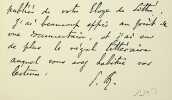 publiés de votre Eloge de Littré.
J'ai beaucoup appris au point de
vue documentaire, et j'ai eu
de plus le régal littéraire
auquel vous avez habitué vos
lecteurs.